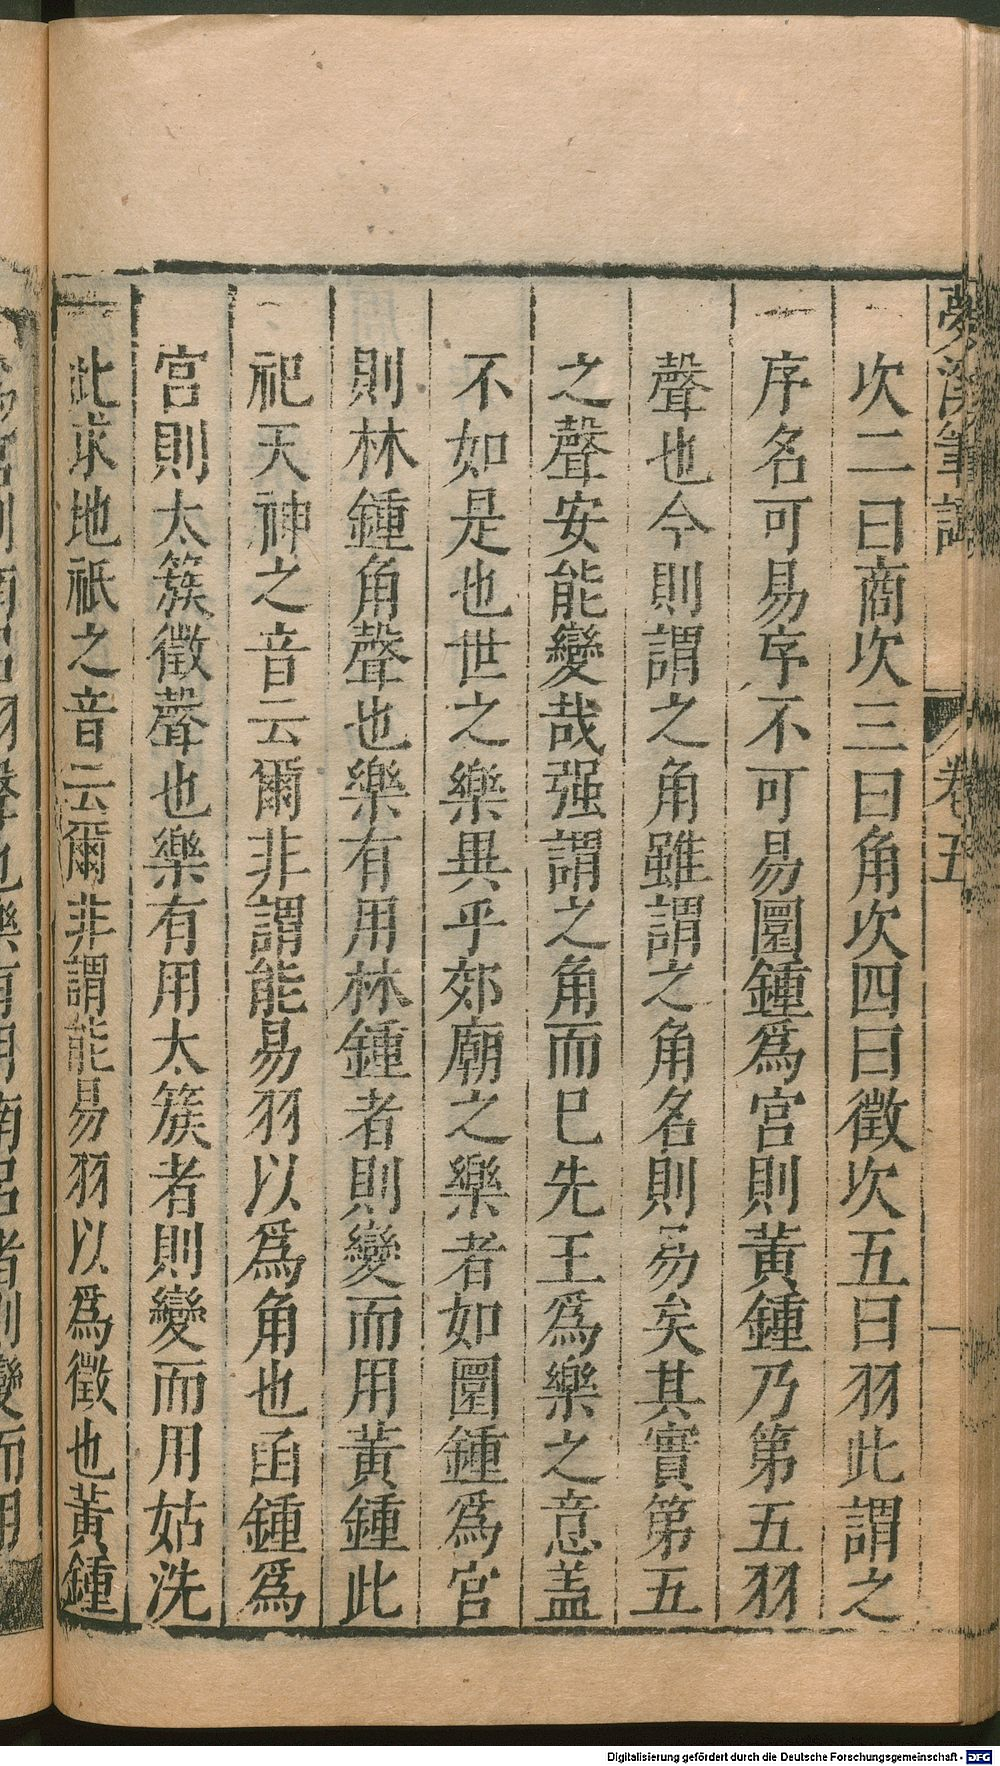 夢溪筆談 卷五 一
次二曰商次三曰角次四曰徵次五曰羽此謂之
序名可易序不可易圜鍾爲宮則黃鍾乃第五羽
聲也今則謂之角雖謂之角名則易矣其實第五
之聲安能變哉强謂之角而巳先王爲樂之意盖
不如是也世之樂異乎郊廟之樂者如圜鍾爲宮
則林鍾角聲也樂有用林鍾者則變而用黃鍾此
祀天神之音云爾非謂能易羽以爲角也函鍾爲
宮則太簇徵聲也樂有用太簇者則變而用姑洗
此求地祇之音云爾非謂能易羽以爲徵也黃鍾
Digitalisierung gefördert durch die Deutsche Forschungsgemeinschaft - DFG